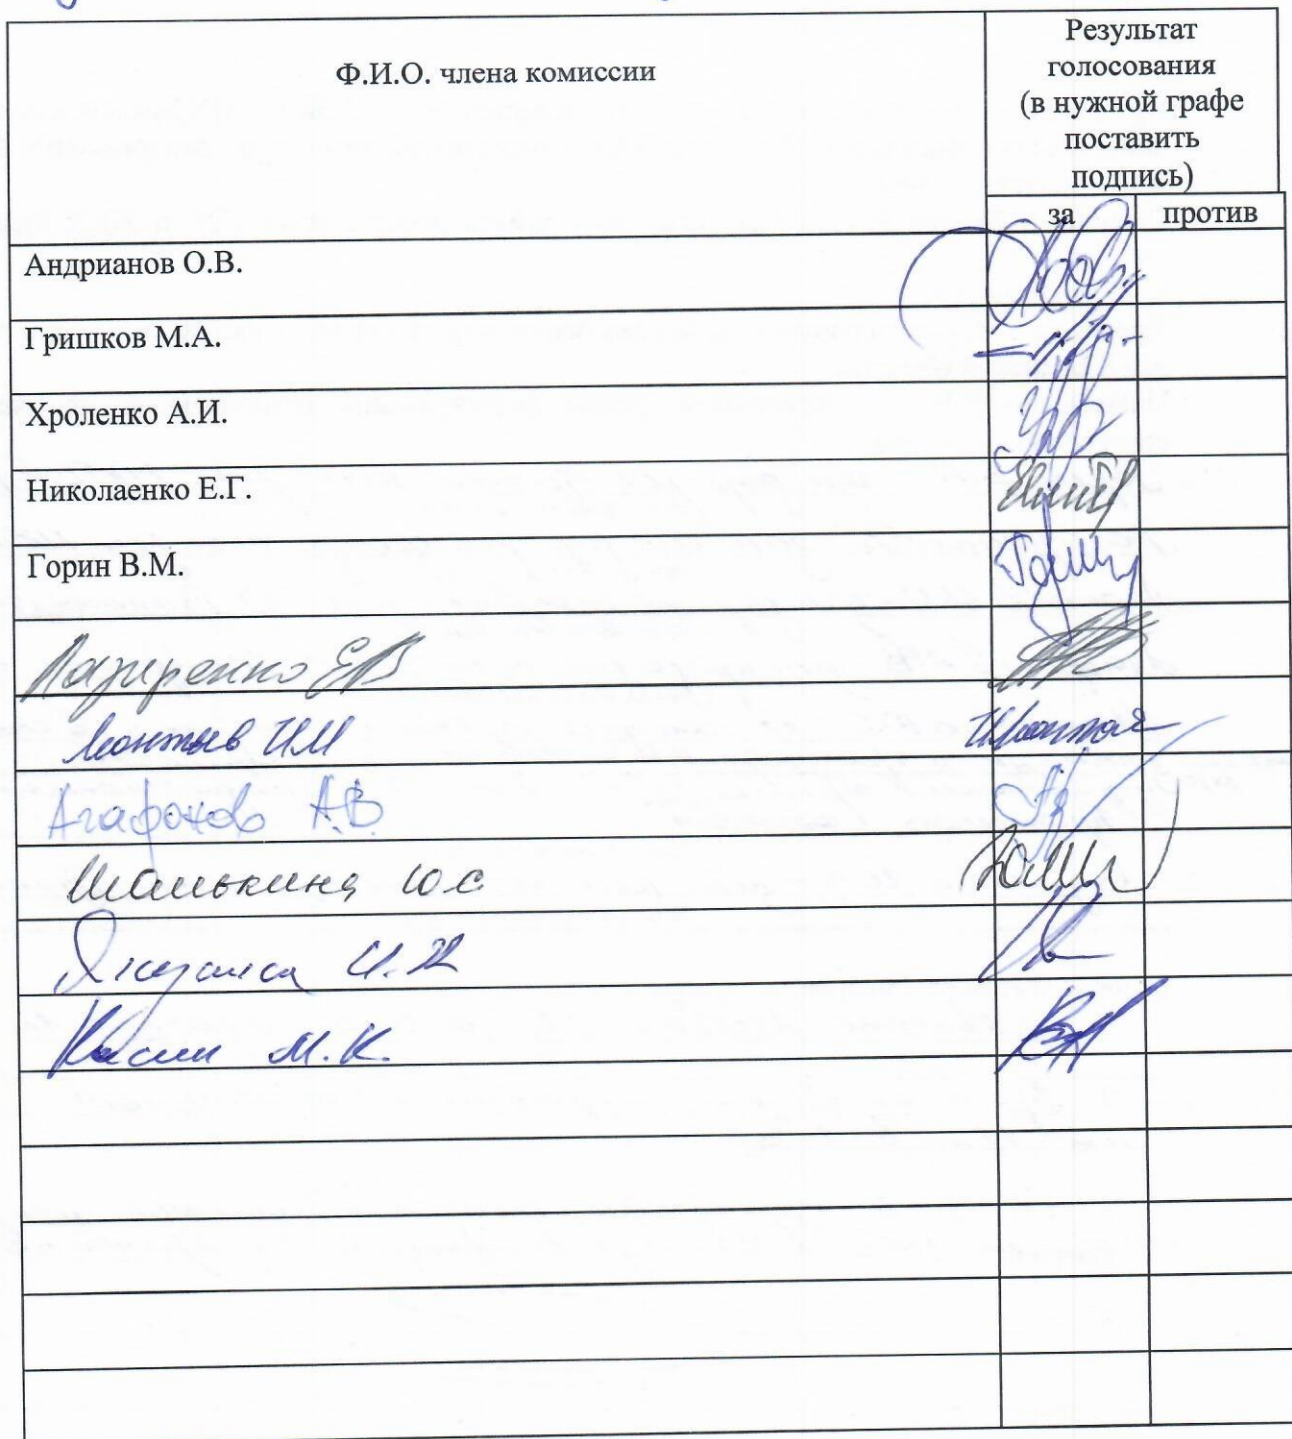 Ф.И.О. члена комиссии
Результат
голосования
(в нужной графе
поставить
подпись)
за
против
Андрианов О.В.
Гришков М.А.
Хроленко А.И.
Николаенко Е.Г.
Горин В.М.
Е.В
Леонтьев И.М
Агафонов А.В.
Шанькина Ю.С
М.К.